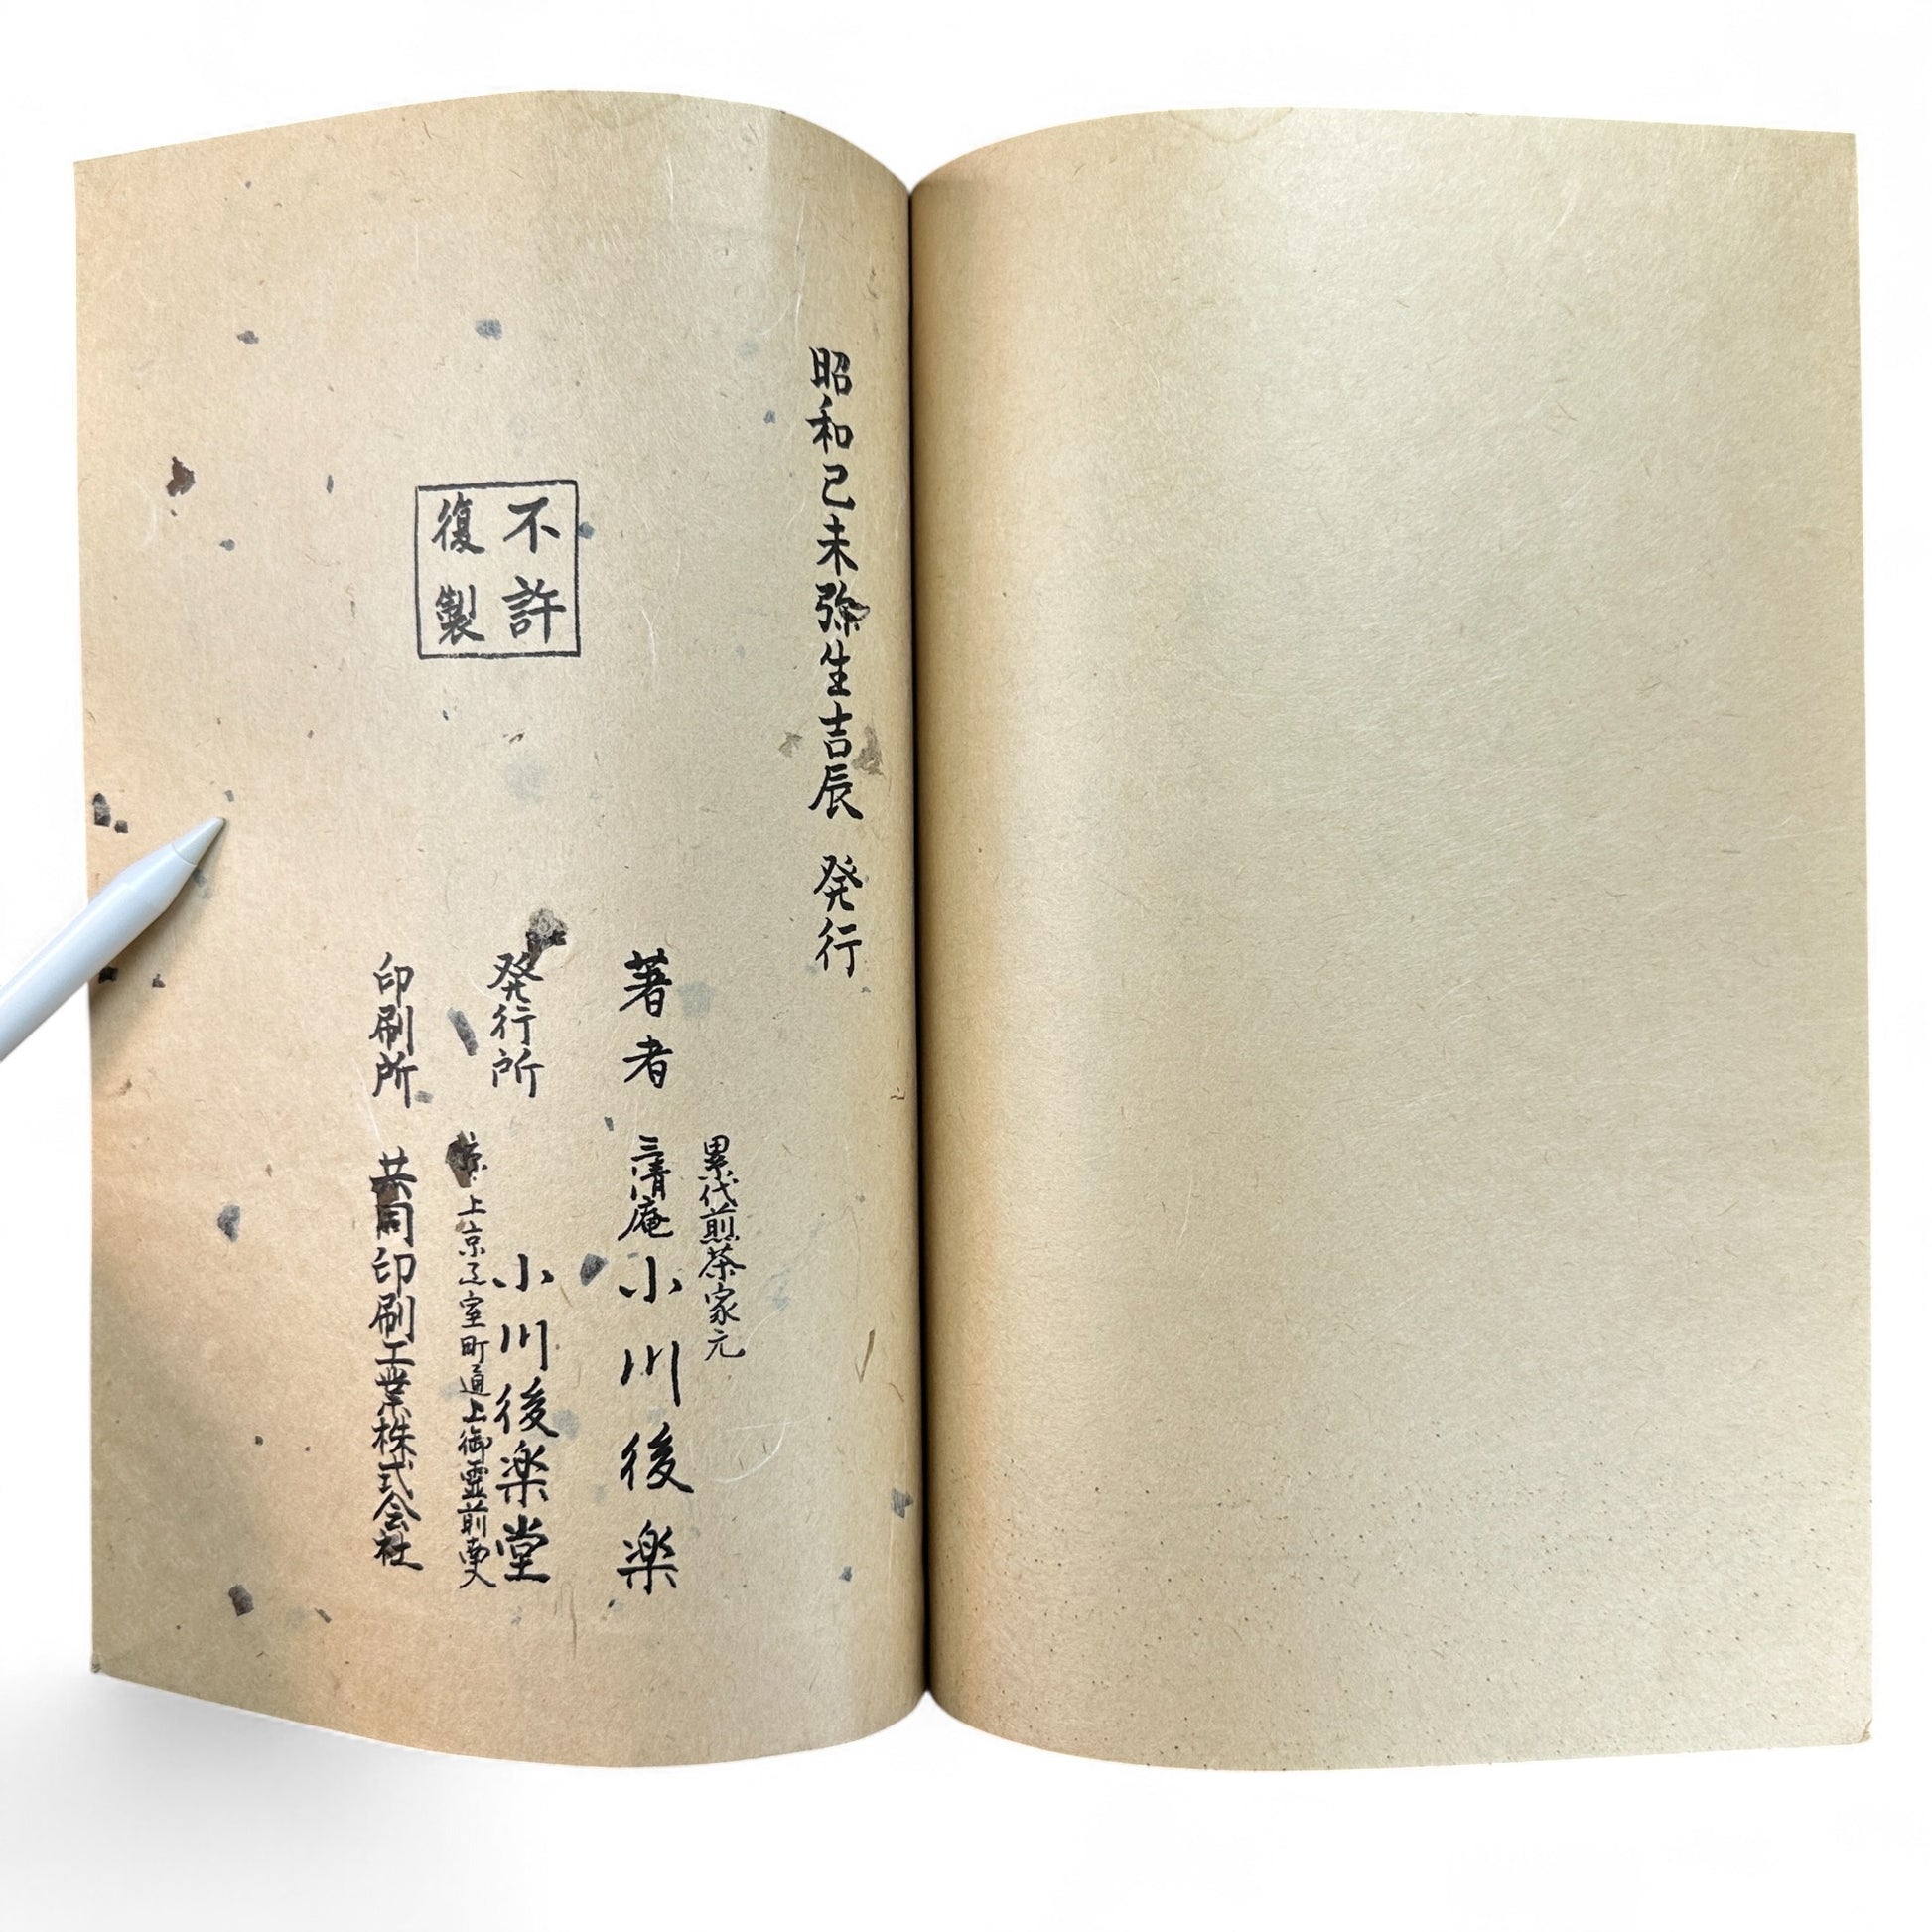 昭和己未弥生吉辰 発行
不許
復製
累代煎茶家元
著者 三清庵 小川後楽
発行所 小川後楽堂
京 上京区室町通上御霊前南入
印刷所 共同印刷工業株式会社